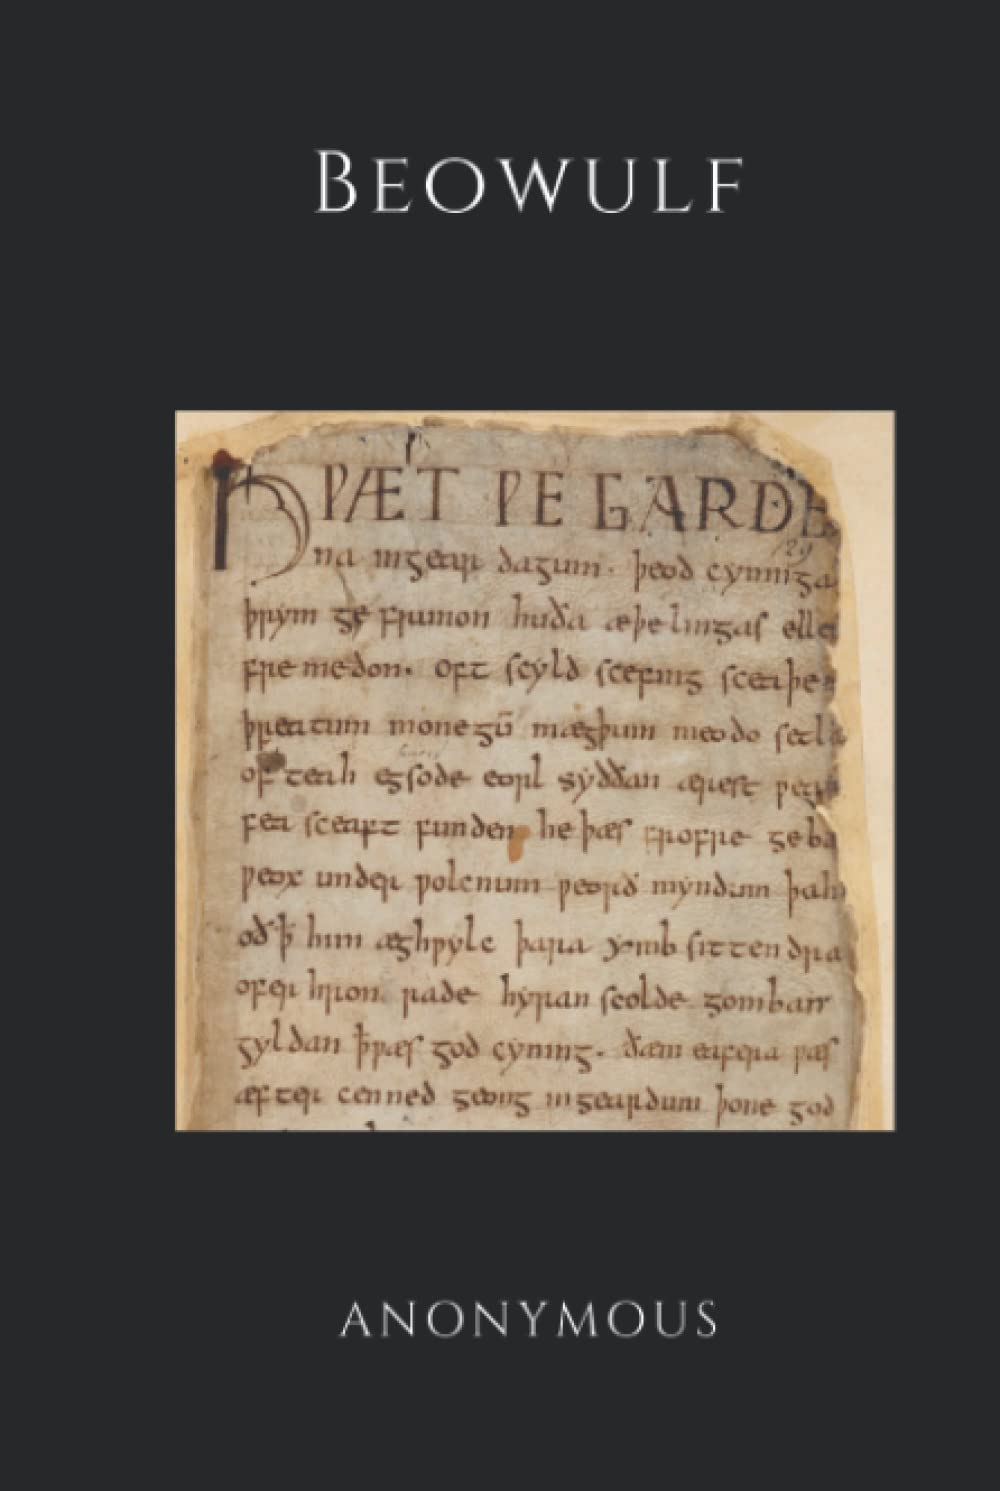 BEOWULF
HǷÆT ǷE GARDE
129
na ingear dagum. þeod cyninga
þrym ge frunon huða æþelingas elle
fremedon. oft scyld scefing sceaþe
þreatum monegū mægþum meodo setla
of teah egsode eorl syððan ærest ƿear
fea sceaft funden he þæs frofre geba
ƿeox under ƿolcnum ƿeorð myndum þah
oð ꝥ him æghƿylc þara ymb sittendra
ofer hron rade hyran scolde gomban
gyldan ꝥ ƿæs god cyning. ðæm eafera ƿæs
æfter cenned geong ingeardum þone god
ANONYMOUS